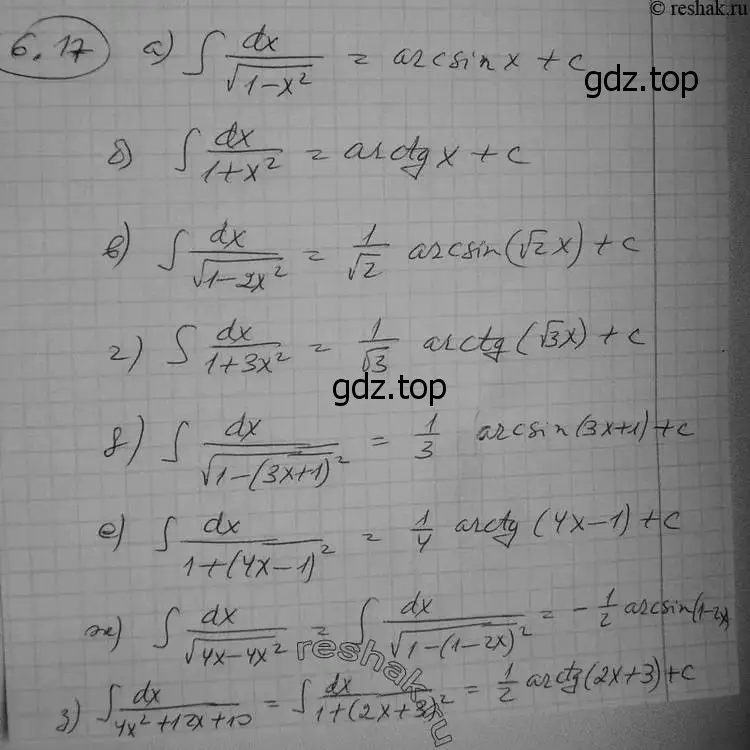 © reshak.ru
6.17 а) ∫ dx/√(1-x²) = arcsin x + c
gdz.top
б) ∫ dx/(1+x²) = arctg x + c
в) ∫ dx/√(1-2x²) = 1/√2 arcsin(√2x) + c
г) ∫ dx/(1+3x²) = 1/√3 arctg(√3x) + c
gdz.top
д) ∫ dx/√(1-(3x+1)²) = 1/3 arcsin(3x+1) + c
е) ∫ dx/(1+(4x-1)²) = 1/4 arctg(4x-1) + c
ж) ∫ dx/√(4x-4x²) = ∫ dx/√(1-(1-2x)²) = -1/2 arcsin(1-2x)
reshak.ru
з) ∫ dx/(4x²+12x+10) = ∫ dx/(1+(2x+3)²) = 1/2 arctg(2x+3) + c